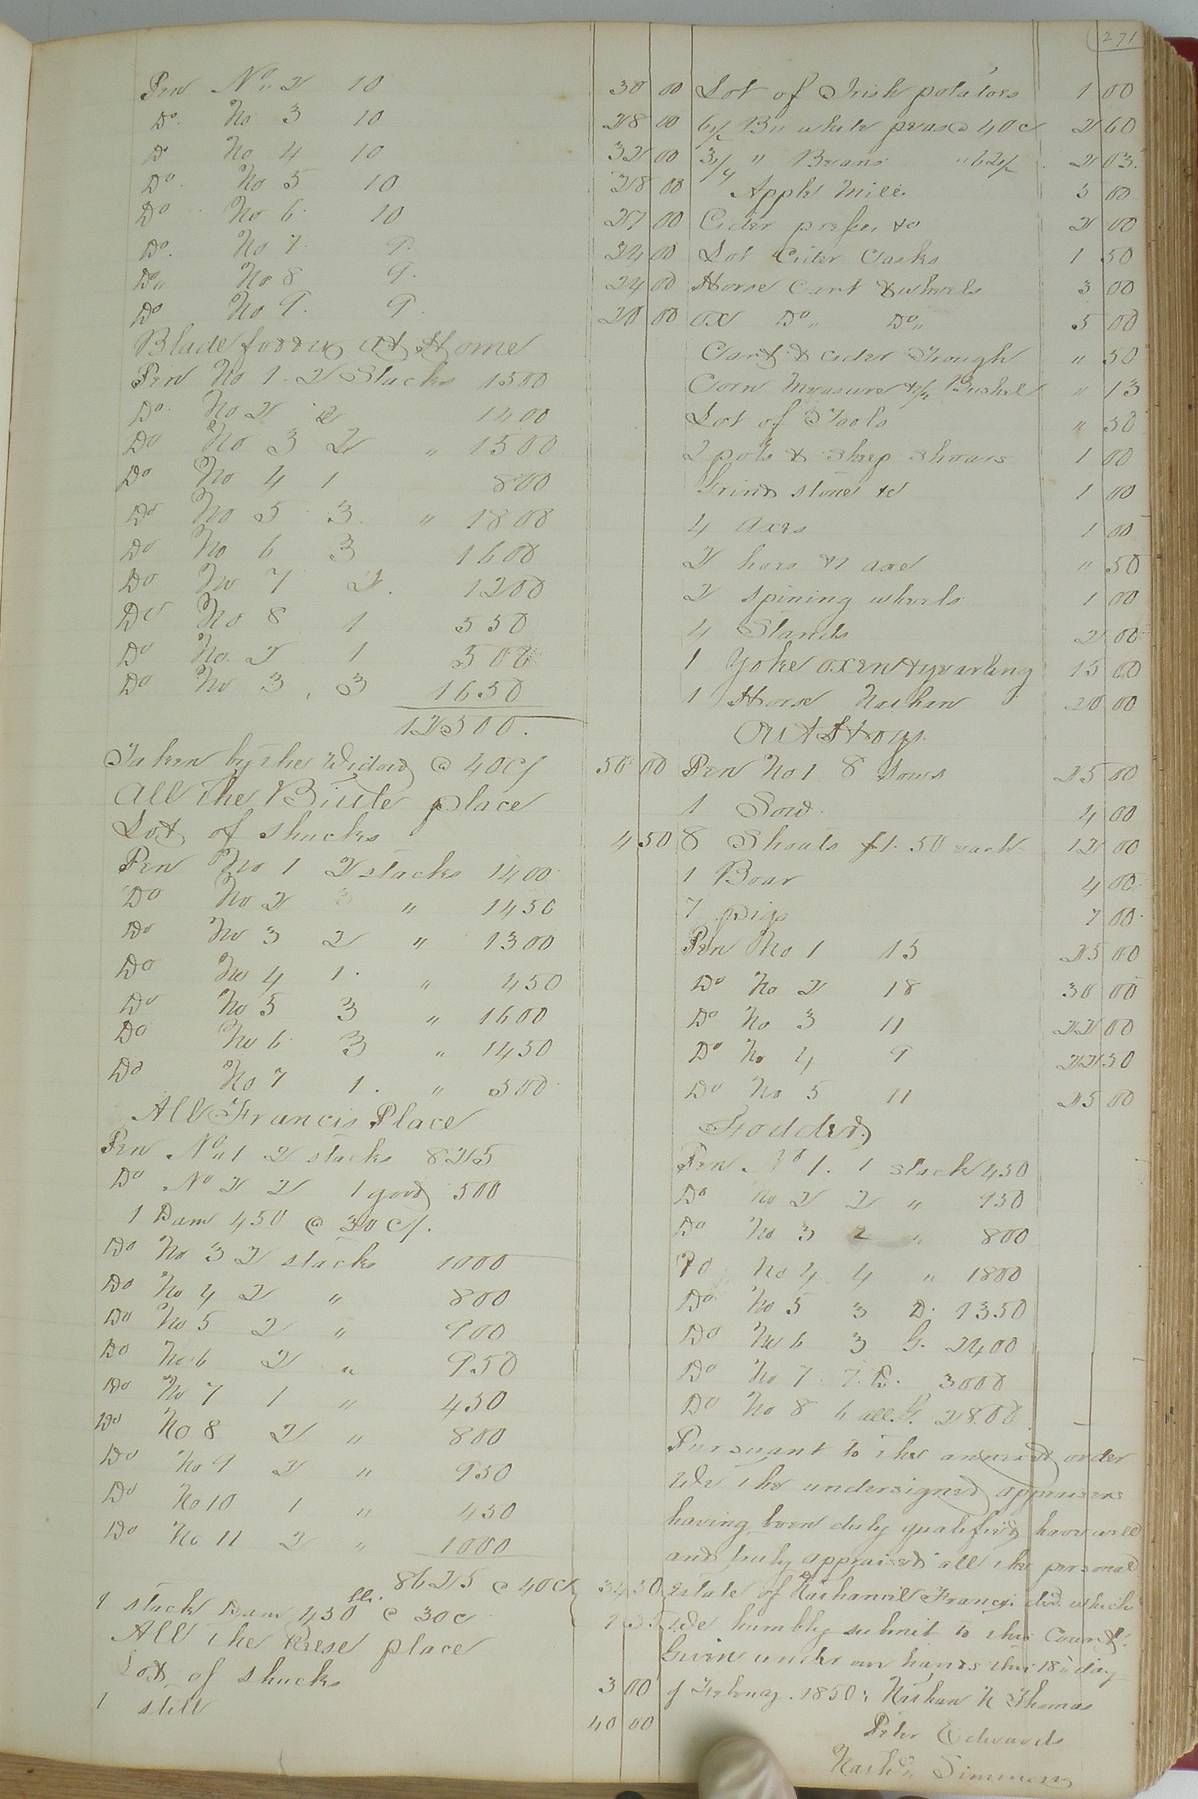 271
Pen No. 2 10 30 00
Do. No 3 10 28 00
Do No 4 10 32 00
Do. No 5 10 28 00
Do No 6 10 27 00
Do. No 7 9. 24 00
Do,, No 8 9. 24 00
Do No 9. 9. 20 00
Blade fodder at Home
Pen No 1. 2 Stacks 1500
Do. No 2 2 1400
Do No 3 2 " 1500
Do No 4 1 800
Do No 5 3. " 1800
Do No 6 3 1600
Do No 7 2. 1200
Do No 8 1 550
Do No. 2 1 500
Do No 3. 3 1650
12500.
Taken by the Widow @ 40c/ 50 00
All the place
Lot of shucks 4 50
Pen No 1 2 stacks 1400
Do No 2 3 " 1450
Do No 3 2 " 1300
Do No 4 1. " 450
Do No 5 3 " 1600
Do No 6 3 " 1450
Do No 7 1. " 500
All Francis Place
Pen No. 1 2 stacks 8225
Do No 2 2 1 good 500
1 Dam 450 @ 30c/.
Do No 3 2 stacks 1000
Do No 4 2 " 800
Do No 5 2 " 900
Do No 6 2 " 950
Do No 7 1 " 450
Do No 8 2 " 800
Do No 9 2 " 950
Do No 10 1 " 450
Do No 11 2 " 1000
8625 @ 40c/ 34 50
1 stack Dam 450 lb. @ 30c 1 35
All the Reese place
Lot of shucks 3 00
1 still 40 00
Lot of Irish potatoes 1 00
6½ Bu white peas @ 40c 2 60
3¼ " Beans " 62½ 2 03.
Apple Mill. 5 00
Cider press, &c 2 00
Lot Cider Casks 1 50
Horse Cart & wheels 3 00
Ox Do,, Do,, 5 00
Cart & cider Trough " 50
Corn Measure & ½ Bushel " 13
Lot of Tools " 50
2 pots & sheep shears 1 00
Grind stone &c 1 00
4 axes 1 00
2 hoes & 1 axe " 50
2 spining wheels 1 00
4 Stands 2 00
1 Yoke oxen & yearling 15 00
1 Horse Nathan 20 00
Out Hogs.
Pen No 1 8 Sows 25 00
1 Sow. 4 00
8 Shoats $1.50 each 12 00
1 Boar 4 00
7 pigs 7 00
Pen No 1 15 25 00
Do No 2 18 30 00
Do No 3 11 22 00
Do No 4 9 22 50
Do No 5 11 25 00
Fodder
Pen No 1. 1 stack 450
Do No 2 2 " 950
Do No 3 2 " 800
Do No 4 4 " 1800
Do No 5 3 D. 1350
Do No 6 3 G. 2400
Do No 7. 7. D. 3000
Do No 8 6 all G. 2800
Pursuant to the annexed order
We the undersigned appraisers
having been duly qualified have well
and truly appraised all the personal
estate of Nathaniel Francis decd. which
we humbly submit to this Court.
Given under our hands this 18th day
of February. 1850. Nathan N Thomas
Peter Edwards
Simmons